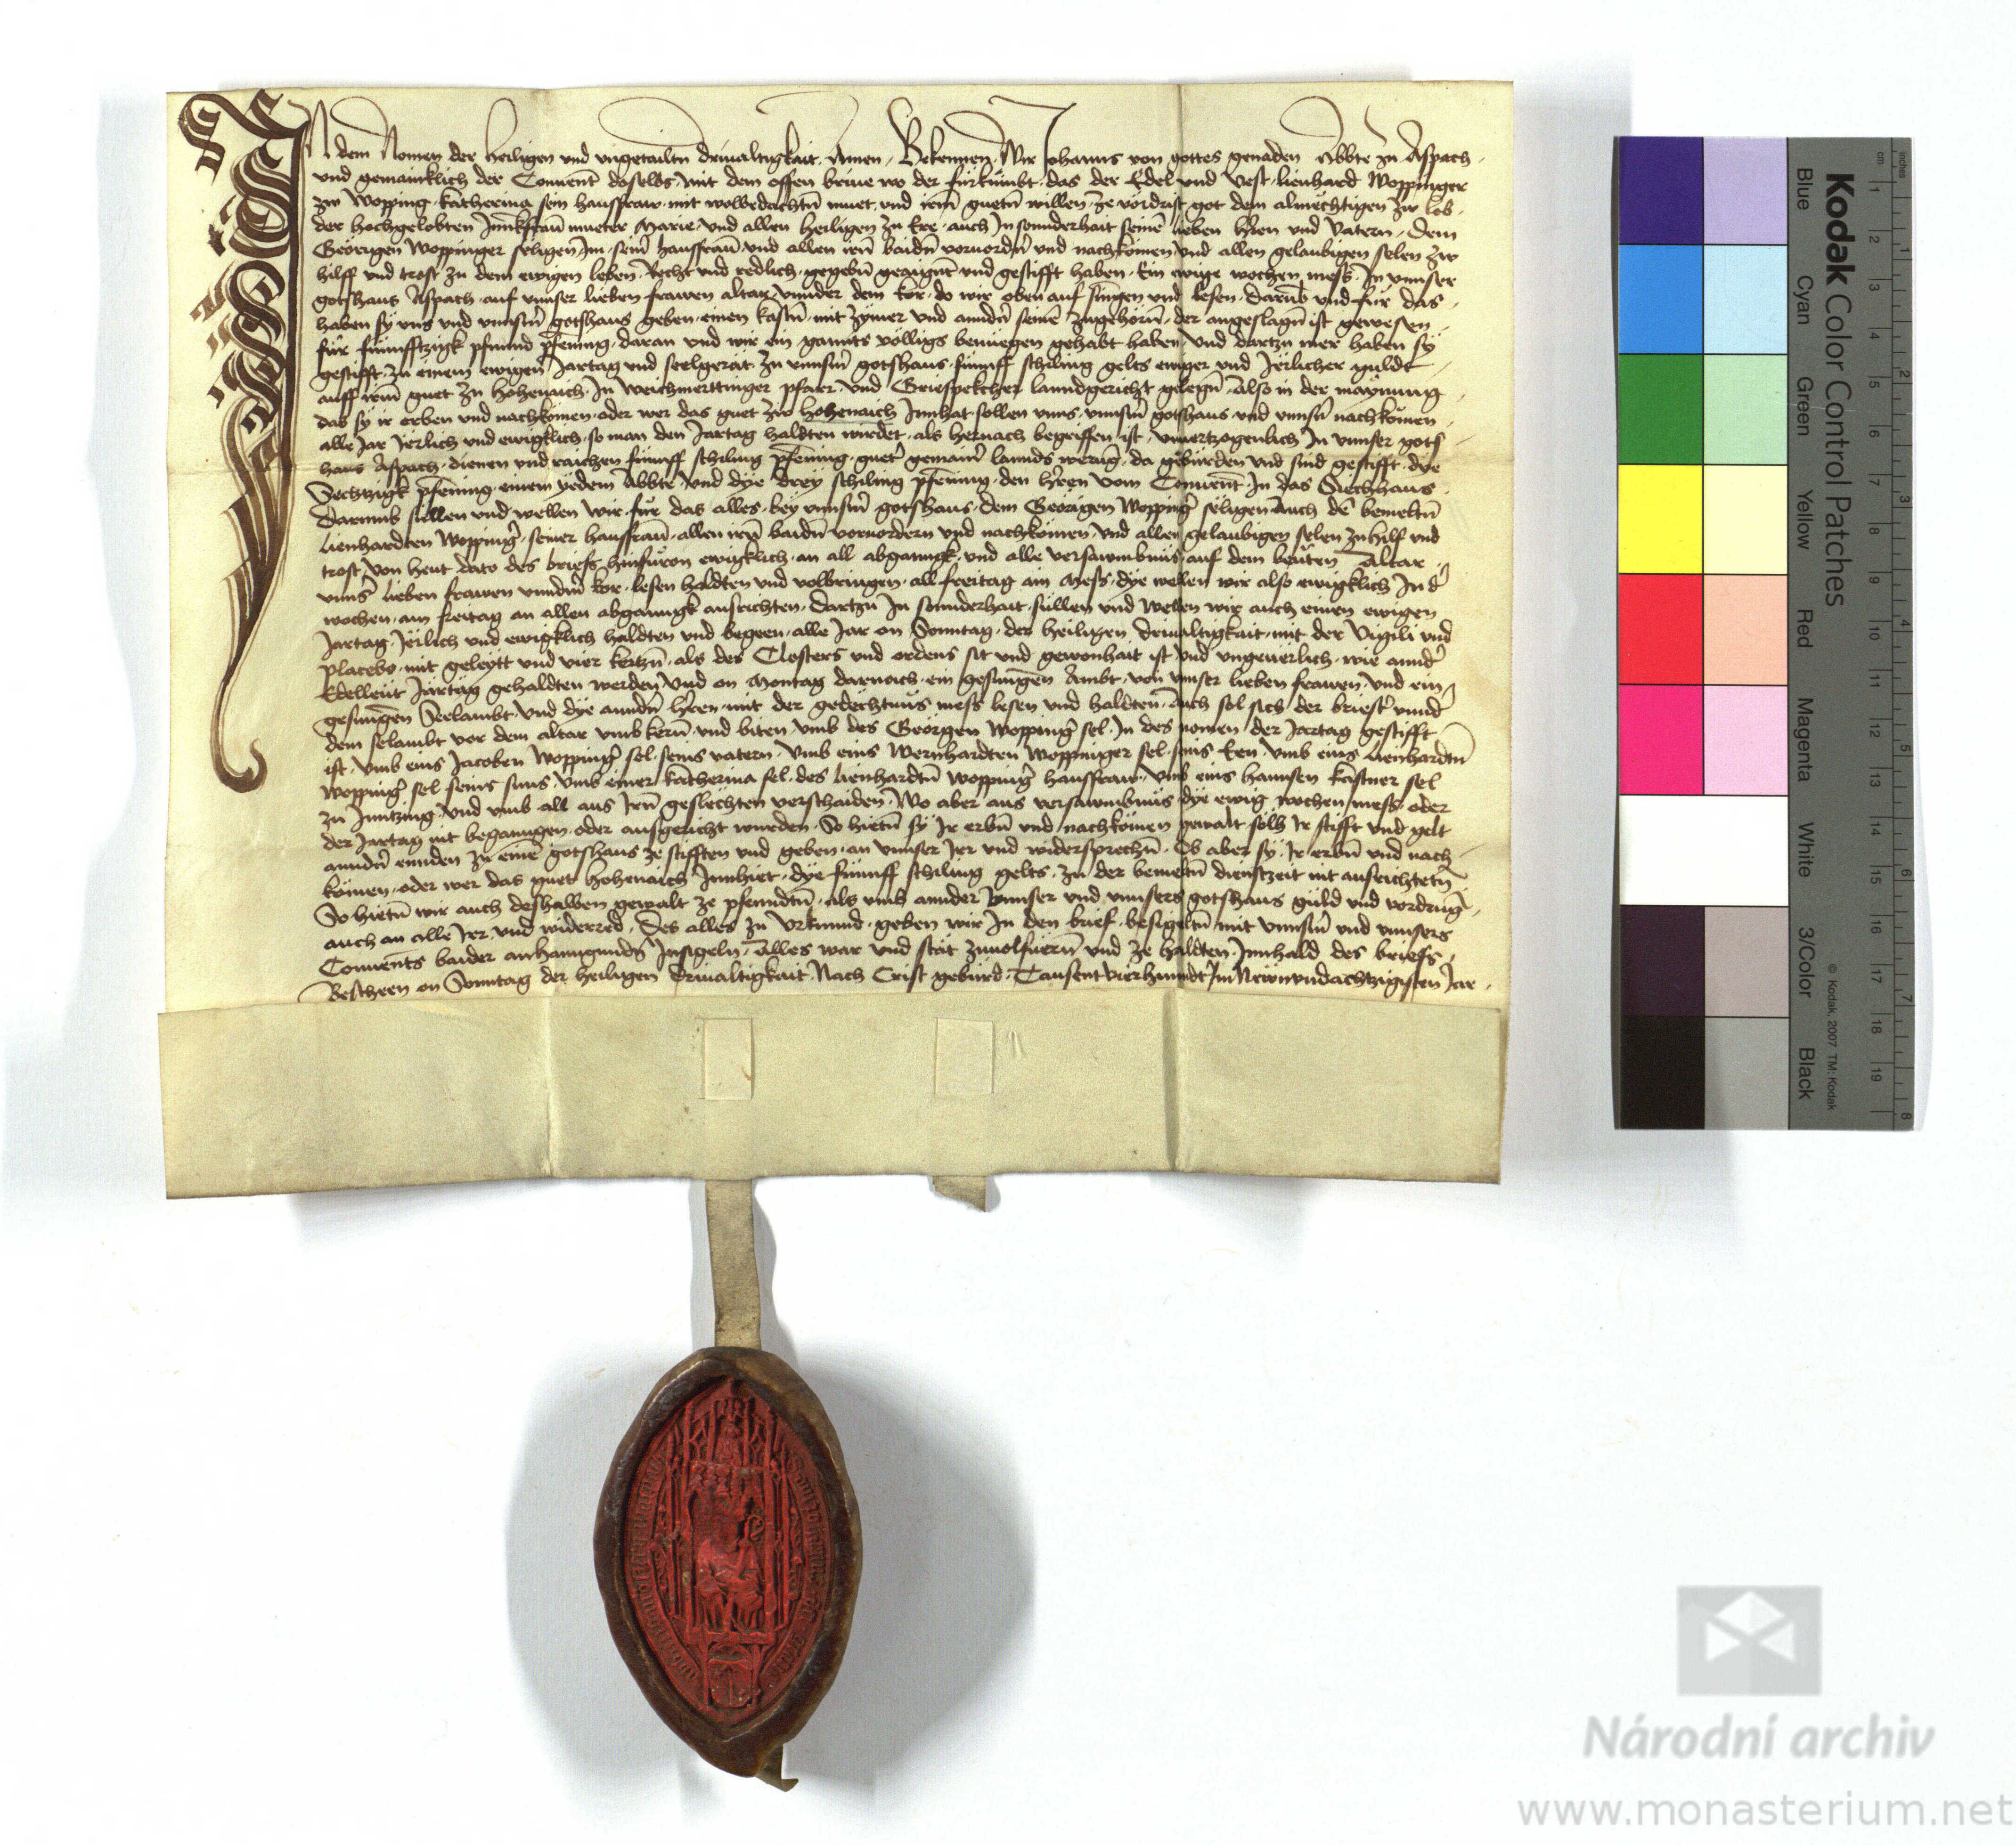 IN dem Nomen der heiligen vnd vngetailtn̄ driualtigkait. Amen. Bekennen Wir Johanns von gottes genaden Abbte zu Aspach.
vnd gemainklich der Conuent̄ doselbs, mit dem offen briue wo der fürkümbt. das der Edel vnd Vest. lienhard Woppinger
zw Wopping. katherina sein hausfraw. mit wolbedachtn̄ muet. vnd irem̄ guetn̄ willen. ze vödrist got dem almechtigen zw lob.
der hochgelobten Junkfraw̄ mueter Marie. vnd allen heiligen zu Ere. auch Jn sonnderhait seinē lieben hr̄en vnd Vatern. Dem
Georigen Woppinger seligen, Jm. sein̄ hausfraw̄. vnd allen irn̄ baidn̄ voruordn̄ vnd nachkömen, vnd allen gelaubigen selen zw
hilff vnd trost zu dem ewigen leben. Recht vnd redlich. gegebn̄ geaygnt̄ vnd gestifft haben. Ein ewige wochen mess. Jn vnnser
gotshaus Aspach. auf vnnser lieben frawen altar. vnnder dem kor. do wir oben auf singen vnd lesen. darub̄ vnd für das.
haben sy vns vnd vnnsm̄ gotshaus geben. einen kastn̄. mit zymer vnd anndn̄ seinē zugehörn̄. der angeslagn̄ ist gewesen.
für fünfftzigk pfunnd pfening. daran vnd wir ein gannts völligs benüegen gehabt haben. Vnd dartzu mer haben sy
gestifft. zu einem ewigen Jartag vnd seelgerät. zu vnnsm̄ gotshaus. fünnff schiling gelts ewiger vnd Järlicher güldt.
auff irem̄ guet zu hohenaich. Jn Weichmerttinger pfarr. vnd Griespekcher lanndgericht gelegn̄. Also in der maynung.
das sy ir erben vnd nachkömen. oder wer das guet zw hohenaich Jnnhat. sollen vnns. vnnsm̄ gotshaus. vnd vnnsn̄ nachkömen.
alle Jar Jerlich vnd ewigklich. so man den Jartag haldten wirdet. als hernach begriffen ist. vnuertzogenlich Jn vnnser gots
haus Aspach. dienen vnd raichen fünnff schiling pfening. guet̄ gemain̄ lannds werūg. da gebürden vnd sind gestifft. dye
Sechtzigk pfening. einem yedem Abbte. vnd dye drey schiling pfening. den hr̄en vom Conuent̄. Jn das Siechhaus.
Darumb sullen vnd wellen wir. für das alles. bey vnnsm̄ gotshaus. dem Georigen Woppinḡ seligen. Auch dē bemeltn̄
lienhardten Woppinḡ. seiner hausfraw̄. allen irn̄ baidn̄ voruordern vnd nachkömen. vnd allen gelaubigen selen zu hilf vnd
trost, von heut dato des briefs hinfüron ewigklich. an all abganngk. vnd alle versawmbnüs. auf dem benāten Altar.
vnns̄ lieben frawen vnndm̄ kor. lesen haldten vnd volbringen. all freitag ain Mess. dye wellen wir also ewigklich Jn d̄
wochen. am freitag an allen abganngk ausrichten. dartzu Jn sonnderhait. sullen vnd wellen wir auch einen ewigen
Jartag. Jerlich vnd ewigklich haldten vnd begeen. alle Jar on Sonntag. der heiligen driualtigkait. mit der Vigili vnd
Placebo. mit geleytt vnd vier kertzn̄. als des Closters vnd ordens sit vnd gewonhait ist vnd vngeuerlich. wie annd̄
Edelleut Järtäg gehaldten werden. Vnd on Montag darnach. ein gesungen Ambt. von vnser lieben frawen. vnd ein
gesungen Seelambt. Vnd dye anndn̄ hr̄en. mit der gedächtnüs mess lesen vnd haldten. Auch sol sich der briest̄ vnnd̄
dem selambt vor dem altar vmbkern̄. vnd biten. vmb des Georigen Woppinḡ sel. Jn des nomen. der Jartag gestifft
ist. Vmb eins Jacoben Woppinḡ sel. seins vatern. Vmb eins Wernhardten Woppinger sel. seins Een. Vmb eins lienhardtn̄
Woppinḡ sel seins suns. Vmb einer katherina sel. des lienhardtn̄ Woppinḡ hausfraw. Vmb eins hannsen kastner sel
zu Jmtzing. Vnd vmb all aus Jrn̄ geslechten verschaiden. Wo aber aus versawmbnüs. dye ewig wochen mess. oder
der Jartag nit beganngen. oder ausgericht wurden. So hietn̄ sy Jr erbn̄ vnd nachkömen gewalt solh Jr stifft vnd gelt
anndn̄ ennden zu einē gotshaus ze stifften vnd geben. an vnnser Jrr vnd widersprechn̄. Ob aber sy. Jr erbn̄ vnd nach
kömen. oder wer das guet hohenaich Jnnhiet. dye fünnff schiling gelts. zu der bemeltn̄ dienstzeit nit ausrichtetn̄
So hietn̄ wir auch deshalben gewalt ze pfenndtn̄. als vmb annder vnnser vnd vnnsers gotshaus güld vnd vordrūg.
auch an alle Jrr. vnd widerred. Des alles zu Vrkunnd. geben wir Jn den brief. besigeltn̄ mit vnnsm̄ vnd vnnsers
Conuents baider anhanngunds Jnsigeln. Alles war vnd stät zuuolfüern̄ vnd ze haldten. Jnnhald des briefs.
Bescheen on Sonntag der heiligen driualtigkait. Nach Crist gebürd. Tausent vierhunndt̄ Jm Newnvndachtzigisten Jar.
Kodak Color Control Patches
Blue Cyan Green Yellow Red Magenta White 3/Color Black
© Kodak, 2007 TM: Kodak
cm 1 2 3 4 5 6 7 8 9 10 11 12 13 14 15 16 17 18 19
inches 1 2 3 4 5 6 7 8
Národní archiv
www.monasterium.net